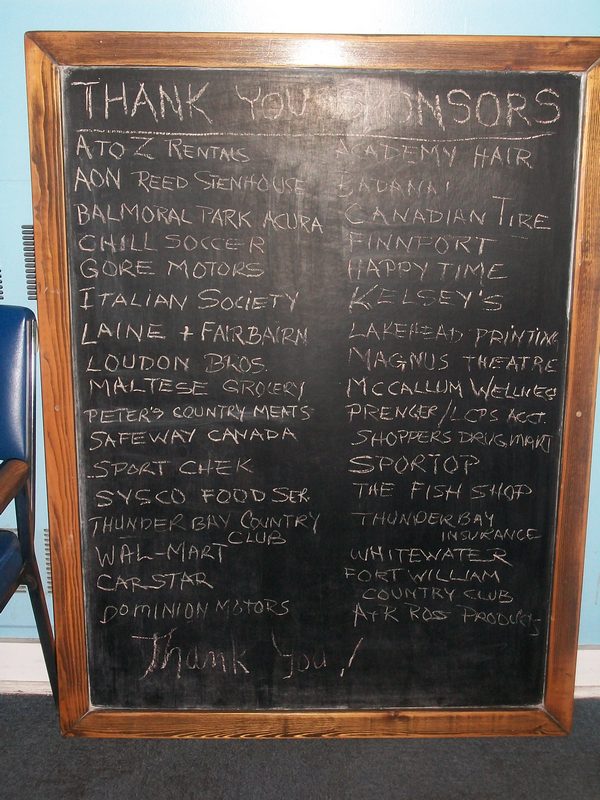 THANK YOU SPONSORS
A TO Z RENTALS
AON REED STENHOUSE
BALMORAL PARK ACURA
CHILL SOCCER
GORE MOTORS
ITALIAN SOCIETY
LAINE + FAIRBAIRN
LOUDON BROS.
MALTESE GROCERY
PETER'S COUNTRY MEATS
SAFEWAY CANADA
SPORT CHEK
SYSCO FOOD SER.
THUNDER BAY COUNTRY
CLUB
WAL-MART
CARSTAR
DOMINION MOTORS
ACADEMY HAIR
BADANAI
CANADIAN TIRE
FINNPORT
HAPPY TIME
KELSEY'S
LAKEHEAD PRINTING
MAGNUS THEATRE
MCCALLUM WELLNESS
PRENGER/LCPS ACCT.
SHOPPERS DRUG MART
SPORTOP
THE FISH SHOP
THUNDER BAY
INSURANCE
WHITEWATER
FORT WILLIAM
COUNTRY CLUB
ROSS PRODUCTS
Thank You!